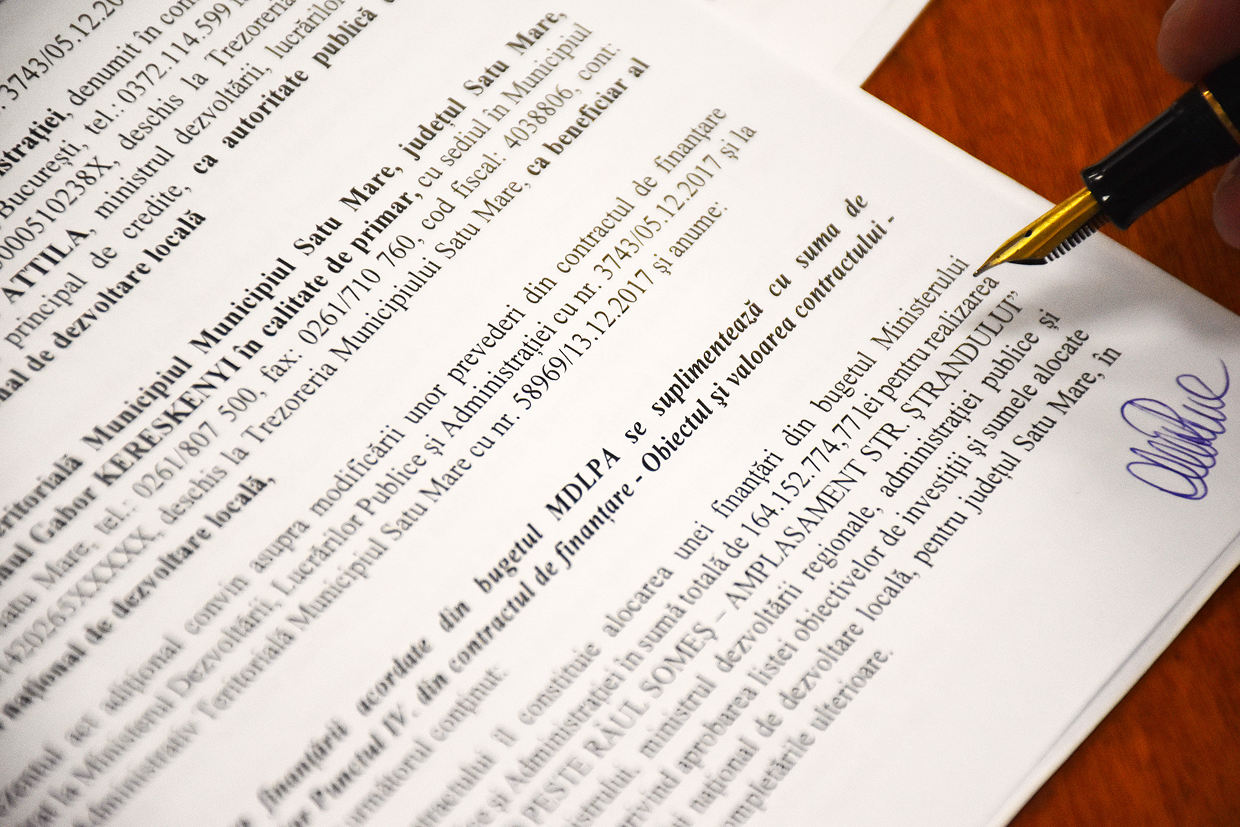 . 3743/05.12.20
strației, denumit în con
București, tel.: 0372.114.599 î
0000510238X, deschis la Trezoreria
ATTILA, ministrul dezvoltării, lucrărilor
principal de credite, ca autoritate publică c
nal de dezvoltare locală
eritorială Municipiul Municipiul Satu Mare, județul Satu Mare,
nul Gabor KERESKENYI în calitate de primar, cu sediul în Municipiul
atu Mare, tel.: 0261/807 500, fax: 0261/710 760, cod fiscal: 4038806, cont:
1420265XXXXX, deschis la Trezoreria Municipiului Satu Mare, ca beneficiar al
național de dezvoltare locală,
act adițional convin asupra modificării unor prevederi din contractul de finanțare
at la Ministerul Dezvoltării, Lucrărilor Publice și Administrației cu nr. 3743/05.12.2017 și la
Administrativ Teritorială Municipiul Satu Mare cu nr. 58969/13.12.2017 și anume:
finanțării acordate din bugetul MDLPA se suplimentează cu suma de
Punctul IV. din contractul de finanțare - Obiectul și valoarea contractului -
următorul conținut:
ractului îl constituie alocarea unei finanțări din bugetul Ministerului
e și Administrației în sumă totală de 164.152.774,77 lei pentru realizarea
PESTE RÂUL SOMEȘ – AMPLASAMENT STR. ȘTRANDULUI”
strului, ministrul dezvoltării regionale, administrației publice și
privind aprobarea listei obiectivelor de investiții și sumele alocate
i național de dezvoltare locală, pentru județul Satu Mare, în
mpletările ulterioare.